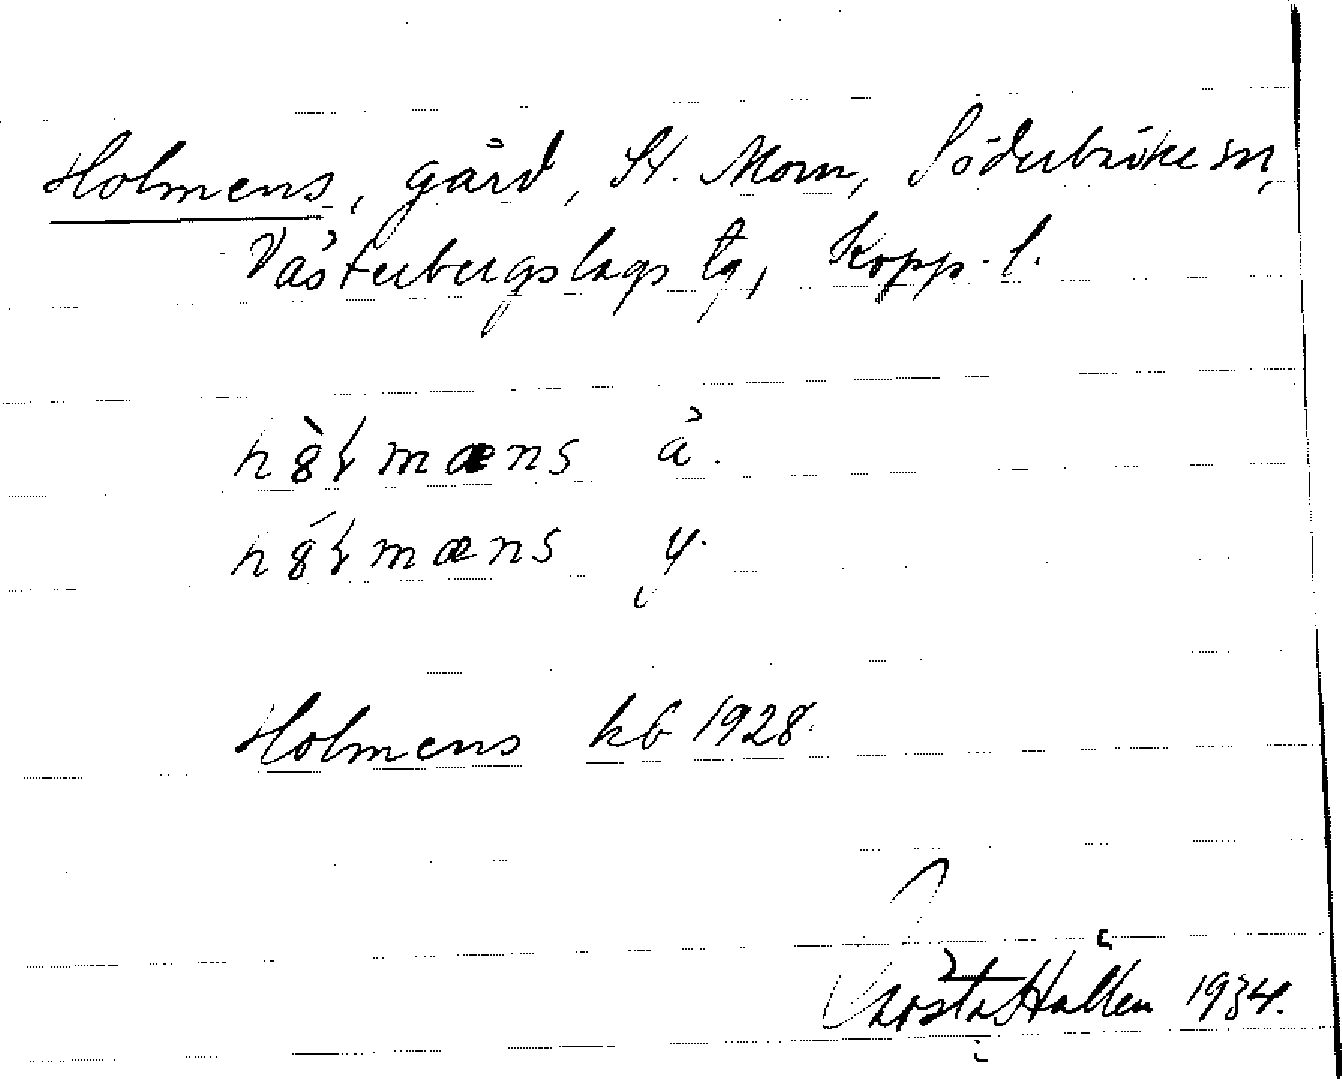 Holmens, gård, St. Morn, Söderbärke sn,
Västerbergslags tg, Kopp. l.
hòlmæns ä.
hólmæns y.
Holmens kb 1928.
Gösta Hallen 1934.